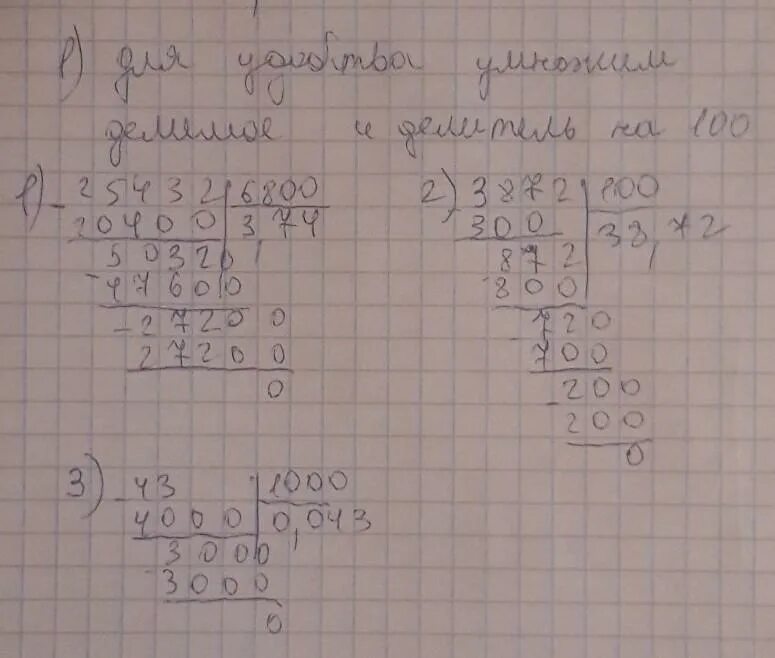 1) для удобства умножим
делимое и делитель на 100
1) - 25432 | 6800
20400 | 3,74
50320
- 47600
- 27200
27200
0
2) - 3872 | 100
300 | 38,72
872
- 800
- 720
700
- 200
200
0
3) - 43 | 1000
4000 | 0,043
3000
- 3000
0